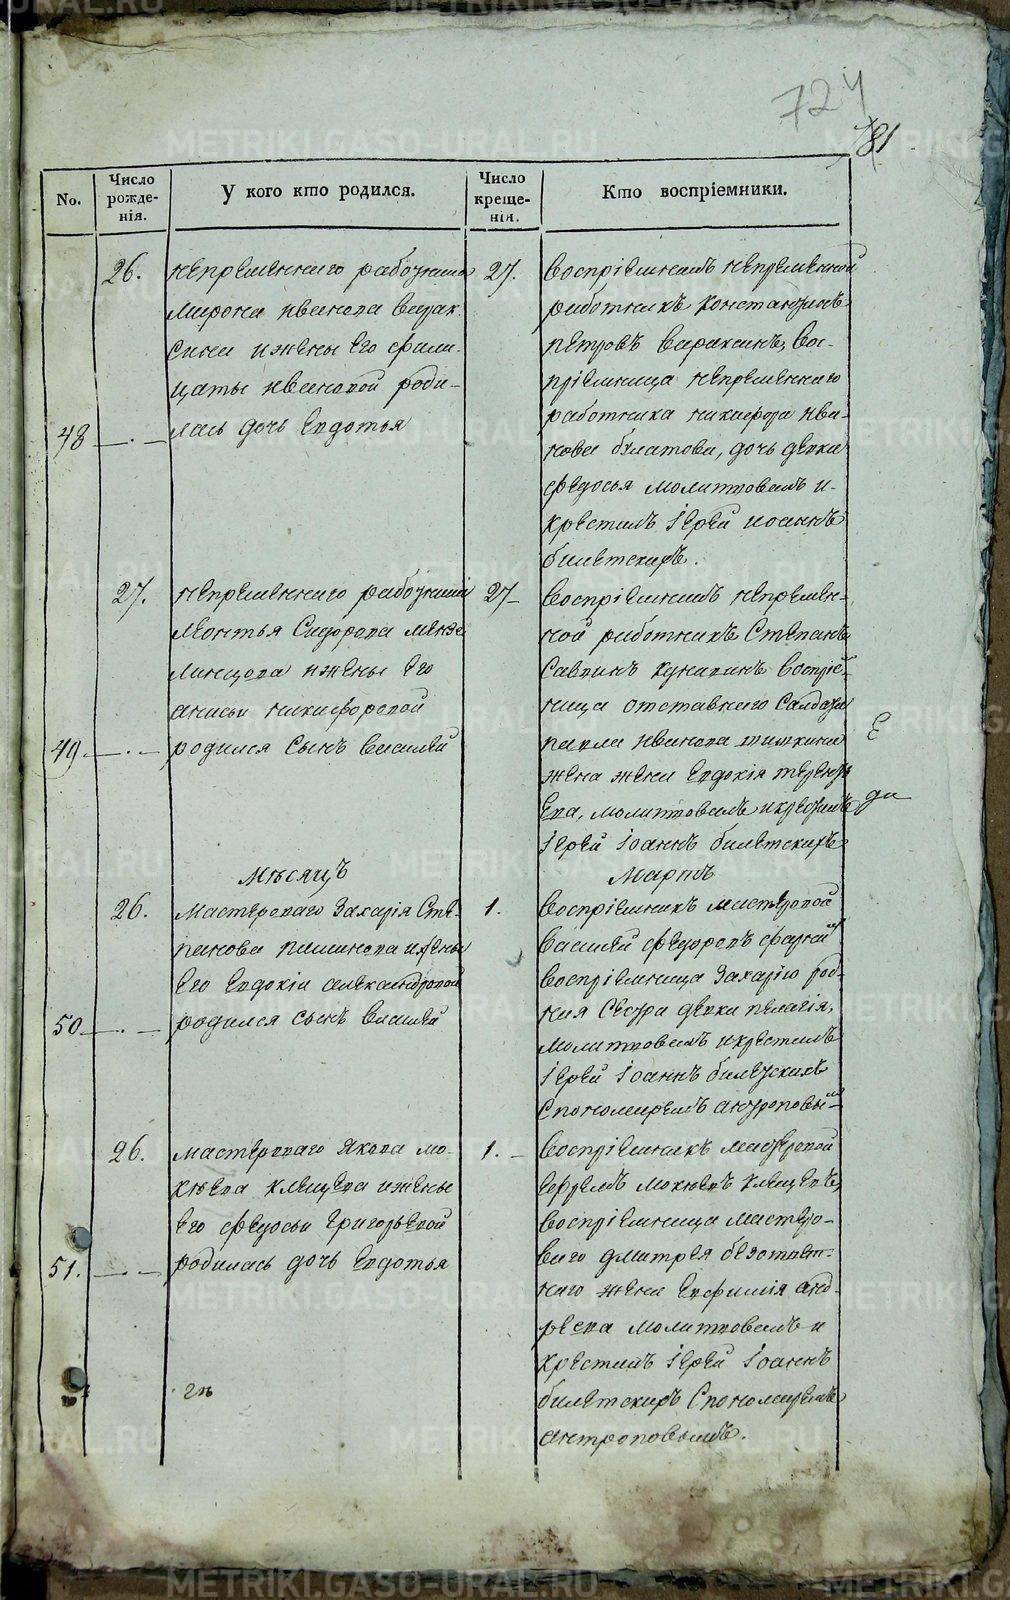 724
781
No.
Число рожденія.
У кого кто родился.
Число крещенія.
Кто воспріемники.
26.
непременнаго работника
Мирона Иванова Варак
сина и жены его Фили-
цаты Ивановой роди-
48
лась дочь Евдотья
27.
Воспріемникъ непременной
работникъ Константинъ
Петровъ Вараксинъ, Вос-
пріемница непременнаго
работника Никифора Ива-
нова Булатова, дочь девка
Федосья молитвовалъ и
крестилъ Іерей Иоаннъ
Билетскихъ.
27.
непременнаго работника
Леонтья Сидорова
и жены его
Анисьи Никифоровой
49
родился сынъ Василей
27
Воспріемникъ непремен-
ной работникъ Степанъ
Саввинъ воспріем-
ница отставнаго Салдата
Павла Иванова
жена жена Евдокія Терентье
ева, молитвовалъ и крестилъ
Іерей Іоаннъ Билетскихъ
Месяцъ
Мартъ
26.
Мастероваго Захарія Сте-
панова и жены
Его Евдокіи Александровой
50
родился сынъ Василей
1.
Воспріемникъ мастеровой
Василей Федоровъ
воспріемница Захарію род-
ная сестра девка Пелагія,
Молитвовалъ и крестилъ
Іерей Іоаннъ Билетскихъ
Спономаремъ Антроповым
26.
мастероваго Якова Мо-
кеева Клещева и жены
Его Федосьи Григорьевой
51.
родилась дочь Евдотья
1.
Воспріемникъ мастеровой
Ефремъ Мокеевъ Клещевъ,
воспріемница мастеро-
ваго Дмитрея Безстаст-
наго жена Евфимія Анд-
реева молитвовалъ и
крестилъ Іерей Іоаннъ
Билетскихъ Спономаремъ
Антроповымъ.
METRIKI.GASO-URAL.RU